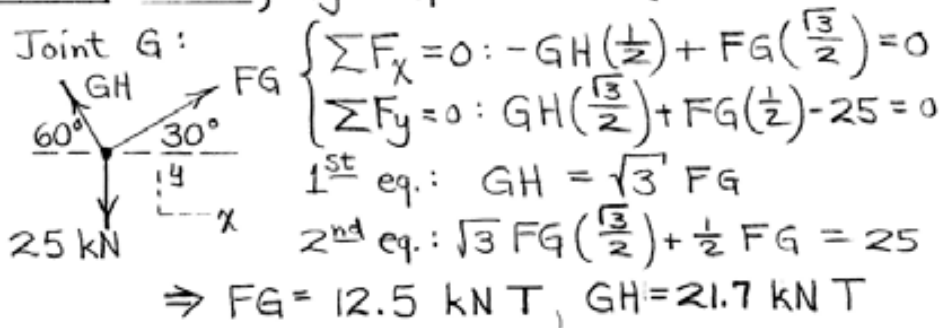 Joint G:
GH
FG
60°
30°
y
x
25 kN
∑Fx = 0: -GH(1/2) + FG(√3/2) = 0
∑Fy = 0: GH(√3/2) + FG(1/2) - 25 = 0
1st eq.: GH = √3 FG
2nd eq.: √3 FG(√3/2) + 1/2 FG = 25
⇒ FG = 12.5 kN T, GH = 21.7 kN T